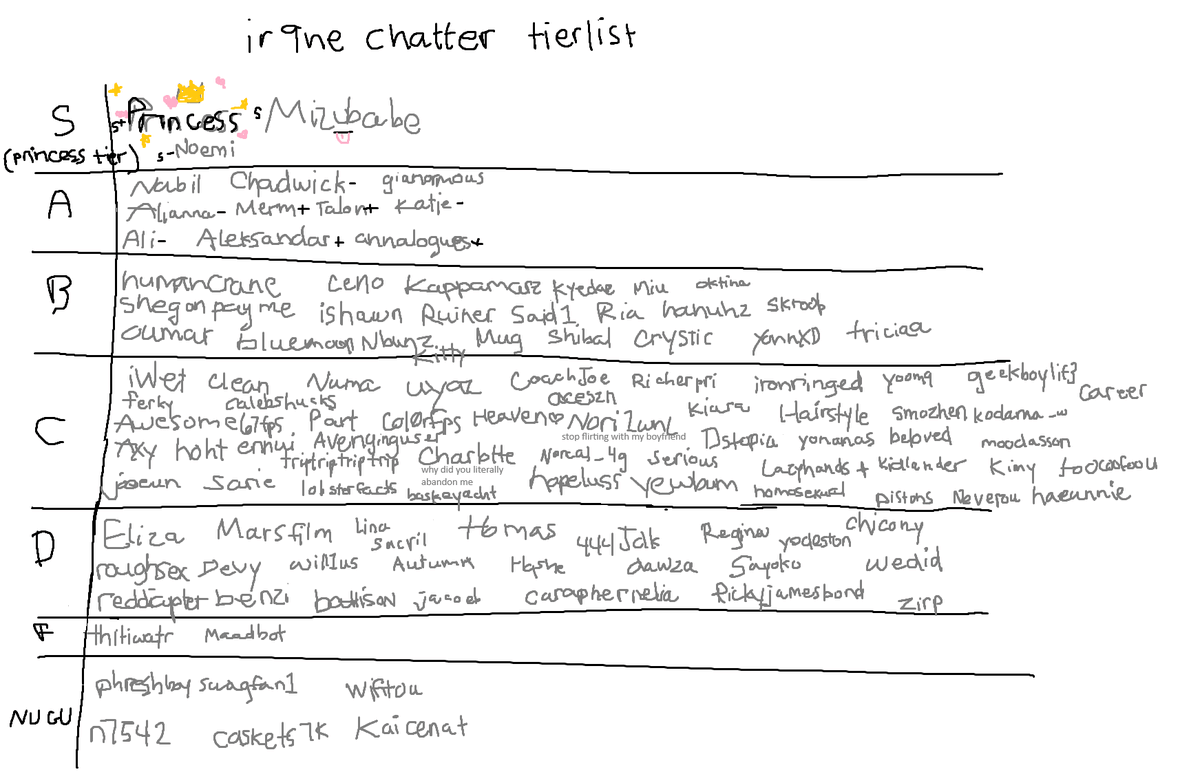 ir9ne chatter tierlist
S s+Princess s Mizubabe
(princess tier) s-Noemi
Nabil Chadwick- gianormous
A Alianna- Merm+ Talon+ Katje-
Ali- Aleksandar+ annalogues+
B humancrane ceno Kappamasz kyedae miu oktina
shegonpayme ishawn Ruiner Said1 Ria hanuhz skroop
oumar bluemoon Nbunz Mug Shibal Crystic YonnXD triciaa
Kitty
iWet clean Numa uyaz CoachJoe Richerpri ironringed yoong geekboylif3
ferky calebshucks aceszn career
C Awesome67fps Part Colorfps Heaven Norizuni Kiara Hairstyle Smozhen kodama_w
stop flirting with my boyfriend
Axy hoht ennui Avenginguser Dstopia yonanas beloved moodasson
triptriptriptrip Charlotte Norcal_4g serious Lazyhands + kidlander Kimy
why did you literally
abandon me
joeun sarie lobsterfacts hopeluss yewbum homosexual pistons Neveryou haeunnie
Eliza Marsfilm Lina Thomas 444Jak Regina chicony
sacril yodeston
D roughsex Devy willus Autumn Hashe dawza Sayoko wedid
benzi jacoeb caraphernelia Rickyjamesbond zirp
F thltiwatr Maadbot
phreshboyswagfan1 wiftou
NUGU n7542 caskets7k Kaicenat